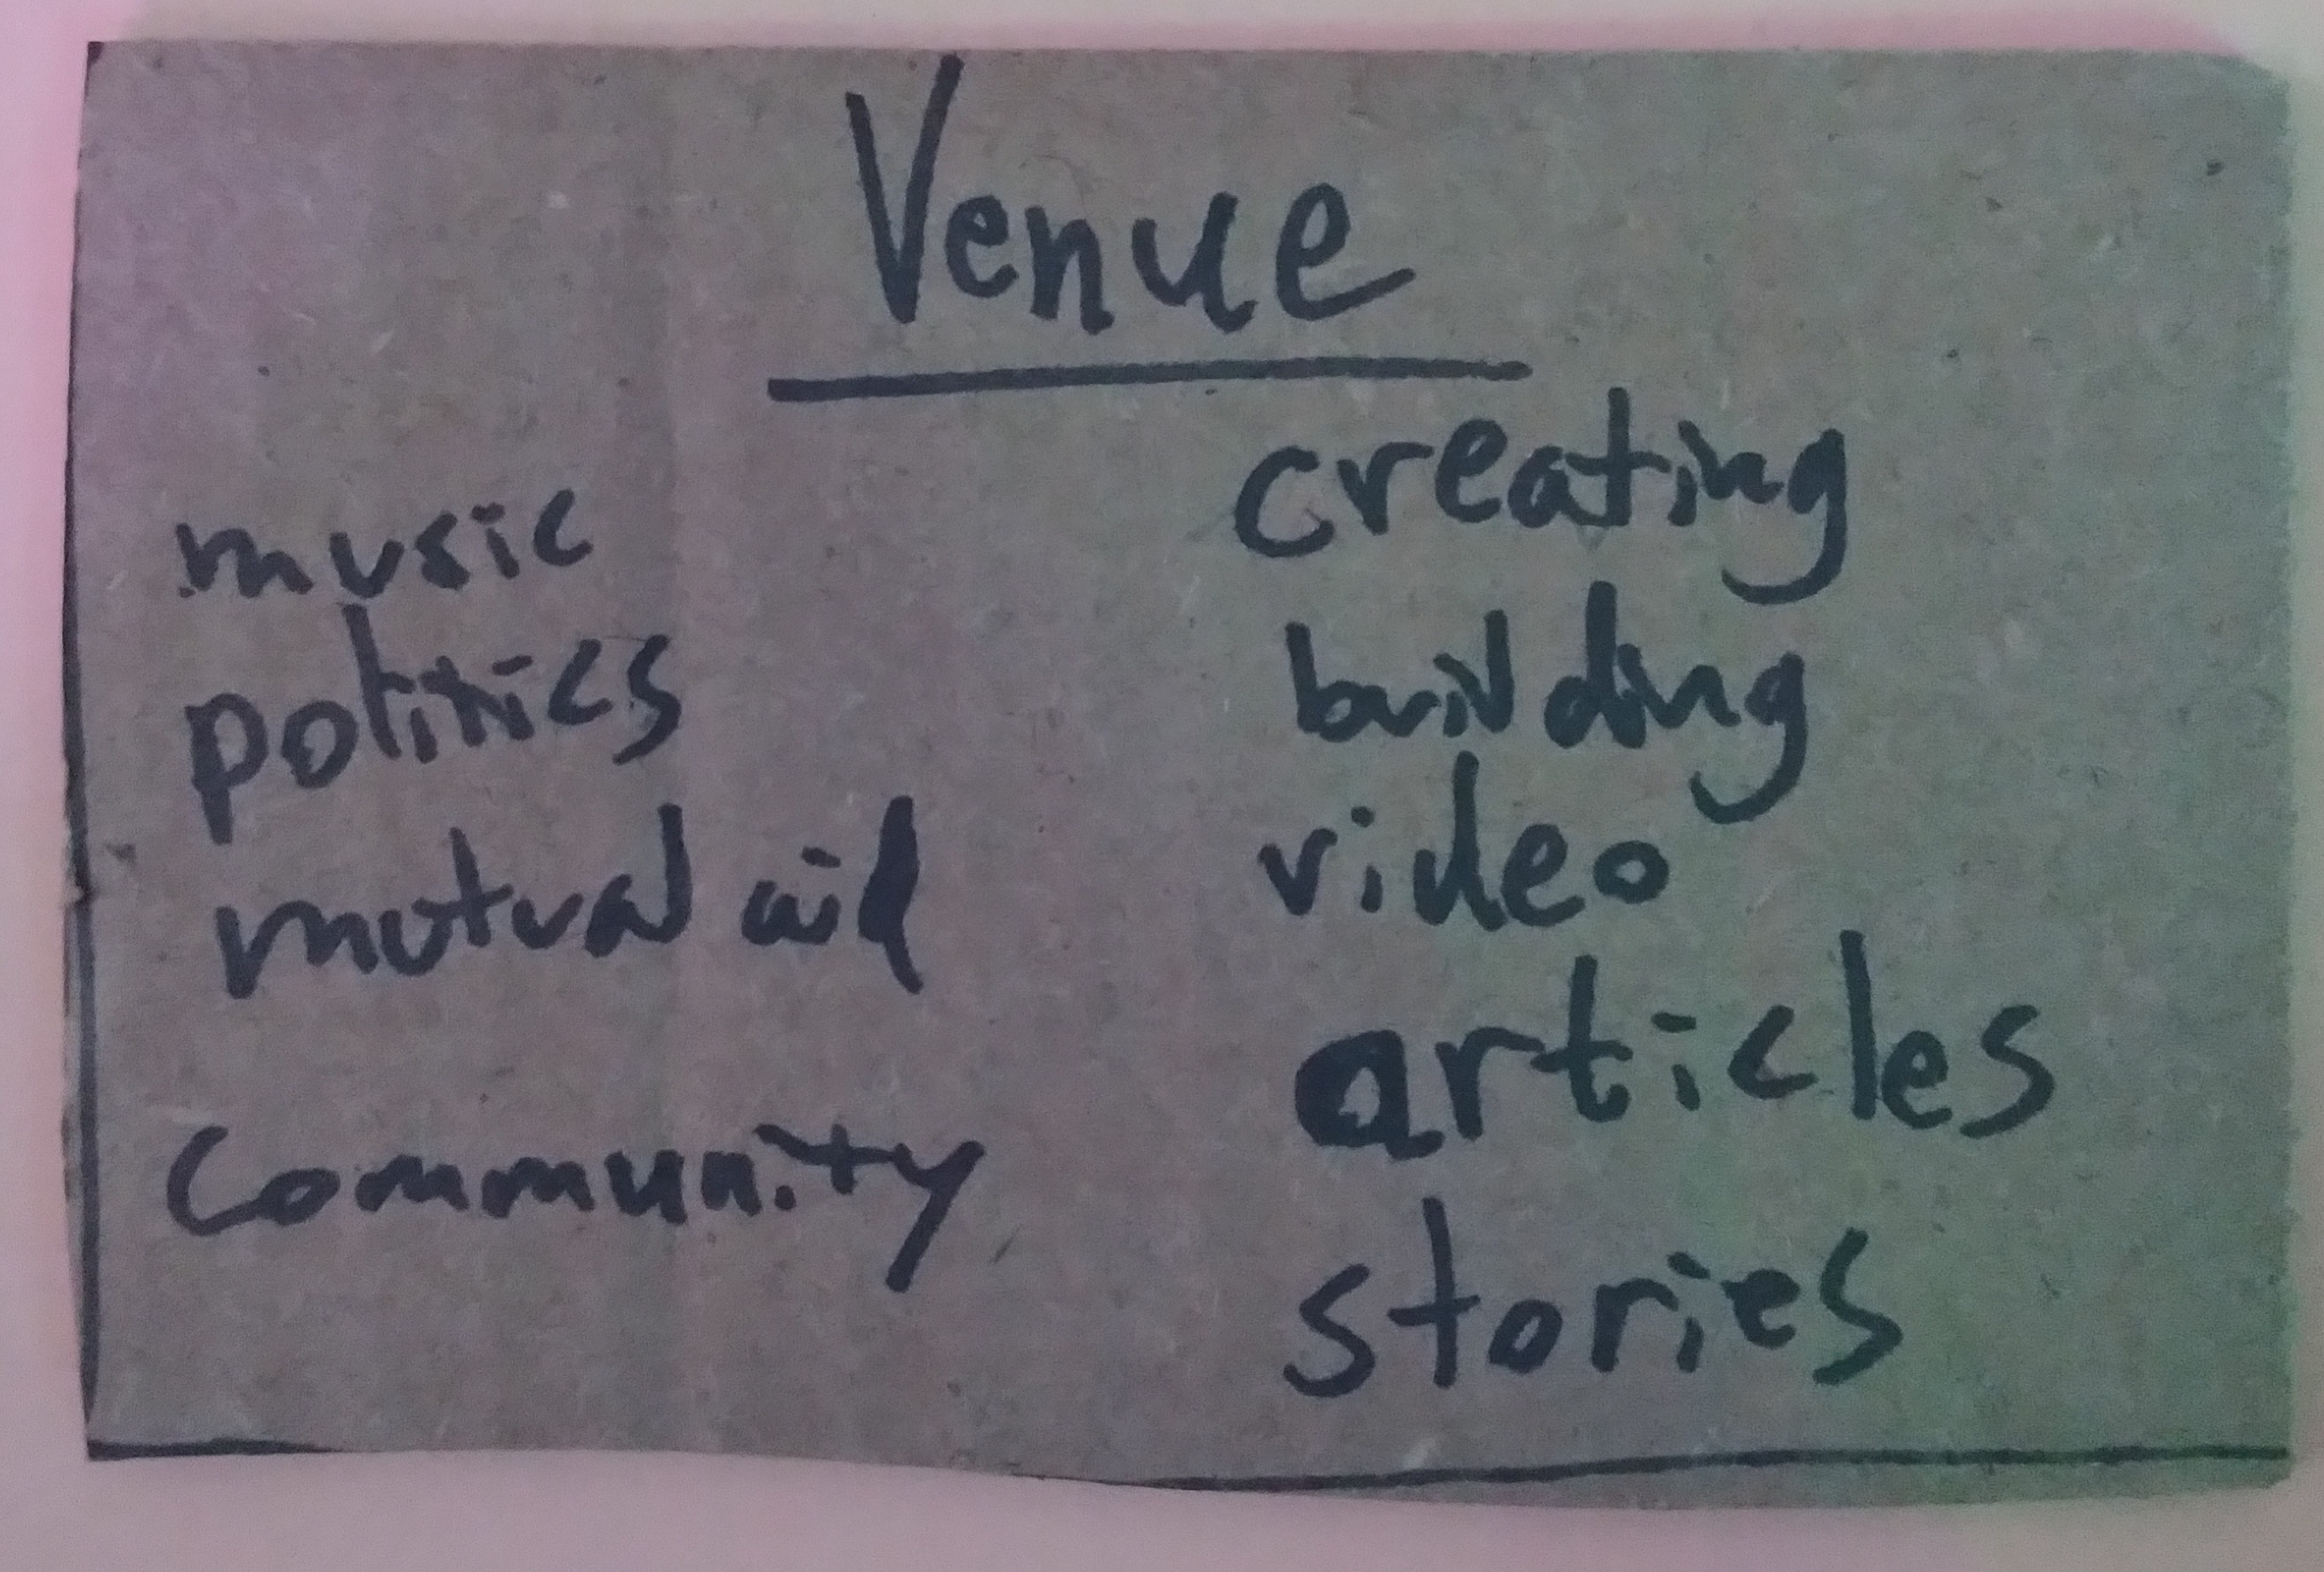 Venue
music
politics
mutual aid
community
creating
building
video
articles
stories